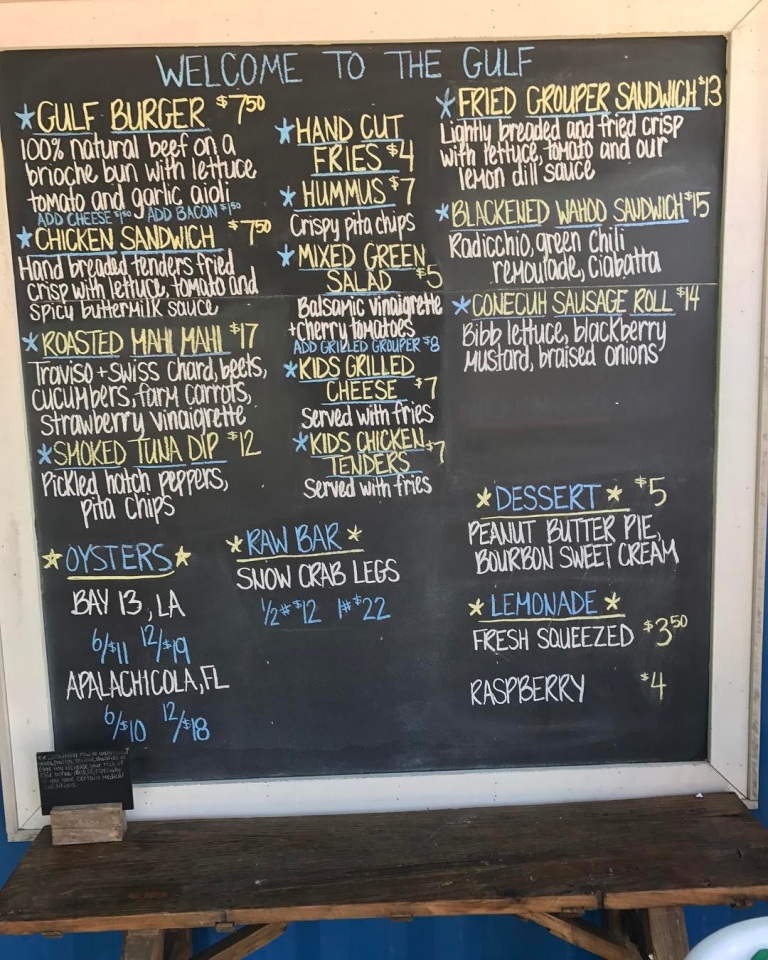 WELCOME TO THE GULF
*GULF BURGER $7.50
100% natural beef on a
brioche bun with lettuce,
tomato and garlic aioli
ADD CHEESE $1.50 / ADD BACON $1.50
*CHICKEN SANDWICH $7.50
Hand breaded tenders fried
crisp with lettuce, tomato and
spicy buttermilk sauce
*ROASTED MAHI MAHI $17
Traviso + swiss chard, beets,
cucumbers, farm carrots,
strawberry vinaigrette
*SMOKED TUNA DIP $12
Pickled hatch peppers,
pita chips
*HAND CUT
FRIES $4
*HUMMUS $7
Crispy pita chips
*MIXED GREEN
SALAD $5
Balsamic vinaigrette
+cherry tomatoes
ADD GRILLED GROUPER $8
*KIDS GRILLED
CHEESE $7
Served with fries
*KIDS CHICKEN
TENDERS $7
Served with fries
*FRIED GROUPER SANDWICH $13
Lightly breaded and fried crisp
with lettuce, tomato and our
lemon dill sauce
*BLACKENED WAHOO SANDWICH $15
Radicchio, green chili
remoulade, ciabatta
*CONECUH SAUSAGE ROLL $14
Bibb lettuce, blackberry
mustard, braised onions
*OYSTERS*
BAY 13, LA
6/$11 12/$19
APALACHICOLA, FL
6/$10 12/$18
*RAW BAR*
SNOW CRAB LEGS
1/2# $12 1# $22
*DESSERT* $5
PEANUT BUTTER PIE,
BOURBON SWEET CREAM
*LEMONADE*
FRESH SQUEEZED $3.50
RASPBERRY $4